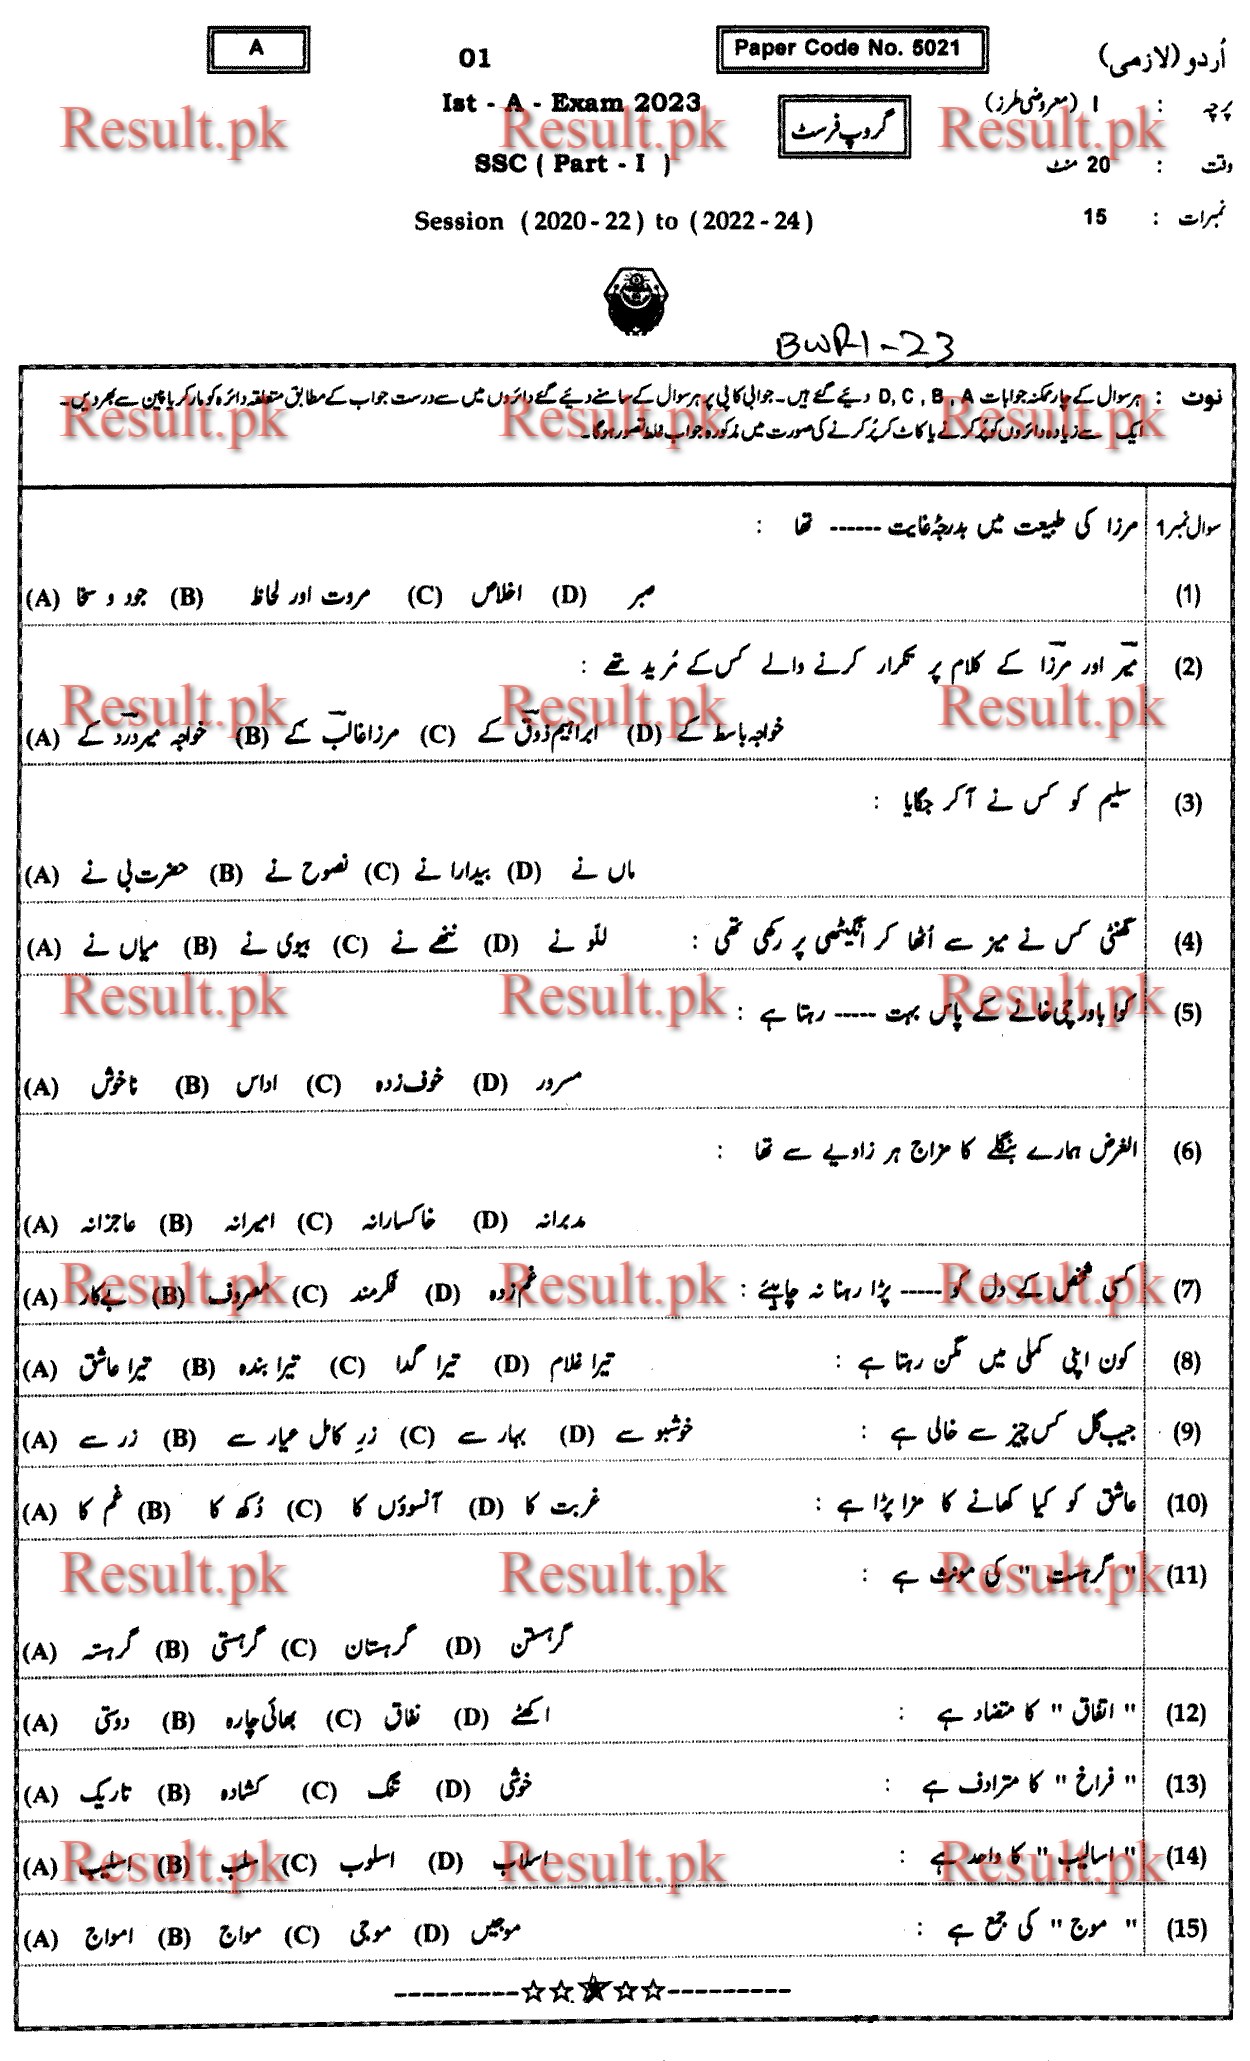 A
01
Paper Code No. 5021
اُردو (لازمی)
Ist - A - Exam 2023
پرچہ : I (معروضی طرز)
گروپ فرسٹ
SSC ( Part - I )
وقت : 20 منٹ
Session ( 2020 - 22 ) to ( 2022 - 24 )
نمبرات : 15
BWR1-23
نوٹ : ہر سوال کے چار ممکنہ جوابات D, C , B , A دیئے گئے ہیں۔ جوابی کاپی پر ہر سوال کے سامنے دیئے گئے دائروں میں سے درست جواب کے مطابق متعلقہ دائرہ کو مارکر یا پین سے بھر دیں۔
ایک سے زیادہ دائروں کو پُر کرنے یا کاٹ کر پُر کرنے کی صورت میں مذکورہ جواب غلط تصور ہوگا۔
سوال نمبر 1 مرزا کی طبیعت میں بدرجۂ غایت ------ تھا :
(1) (A) جود و سخا (B) مروت اور لحاظ (C) اخلاص (D) صبر
(2) میر اور مرزا کے کلام پر تکرار کرنے والے کس کے مُرید تھے :
(A) خواجہ میر درد کے (B) مرزا غالب کے (C) ابراہیم ذوق کے (D) خواجہ باسط کے
(3) سلیم کو کس نے آکر جگایا :
(A) حضرت بی نے (B) نصوح نے (C) بیدارا نے (D) ماں نے
(4) گھنٹی کس نے میز سے اُٹھا کر انگیٹھی پر رکھی تھی : (A) میاں نے (B) بیوی نے (C) ننھے نے (D) للو نے
(5) کوا باورچی خانے کے پاس بہت ----- رہتا ہے :
(A) ناخوش (B) اداس (C) خوف زدہ (D) مسرور
(6) الغرض ہمارے بنگلے کا مزاج ہر زاویے سے تھا :
(A) عاجزانہ (B) امیرانہ (C) خاکسارانہ (D) مدبرانہ
(7) کسی شخص کے دل کو ----- پڑا رہنا نہ چاہیئے : (A) بے کار (B) معروف (C) فکر مند (D) غم زدہ
(8) کون اپنی کملی میں مگن رہتا ہے : (A) تیرا عاشق (B) تیرا بندہ (C) تیرا گدا (D) تیرا غلام
(9) جیب گل کس چیز سے خالی ہے : (A) زر سے (B) زرِ کامل عیار سے (C) بہار سے (D) خوشبو سے
(10) عاشق کو کیا کھانے کا مزا پڑا ہے : (A) غم کا (B) دُکھ کا (C) آنسوؤں کا (D) غربت کا
(11) " گرہست " کی مونث ہے :
(A) گرہستہ (B) گرہستی (C) گرہستان (D) گرہستن
(12) " اتفاق " کا متضاد ہے : (A) دوستی (B) بھائی چارہ (C) نفاق (D) اکھٹے
(13) " فراخ " کا مترادف ہے : (A) تاریک (B) کشادہ (C) تنگ (D) خوشی
(14) " اسالیب " کا واحد ہے : (A) اسلیب (B) سلب (C) اسلوب (D) اسلاب
(15) " موج " کی جمع ہے : (A) امواج (B) مواج (C) موجی (D) موجیں
---------☆☆★☆☆---------
Result.pk Result.pk Result.pk
Result.pk Result.pk Result.pk
Result.pk Result.pk Result.pk
Result.pk Result.pk Result.pk
Result.pk Result.pk Result.pk
Result.pk Result.pk Result.pk
Result.pk Result.pk Result.pk